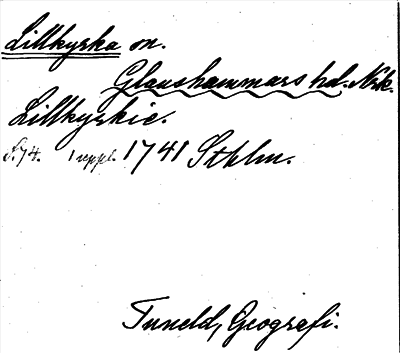 Lillkyrka sn.
Glanshammars hd. Nrk.
Lillkyrkie.
S. 74. 1 uppl. 1741 Sthlm.
Tuneld, Geografi.